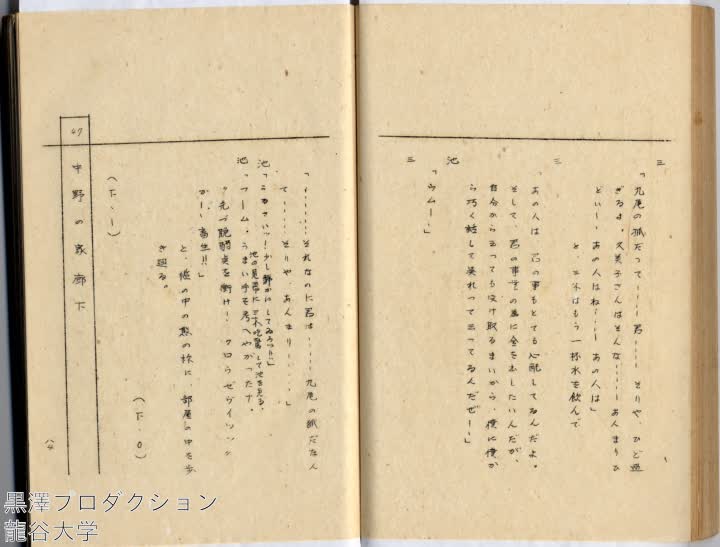 三
「九尾の狐だって……君……そりや、ひど過
ぎるよ。久美子さんはそんな……あんまりひ
どい……あの人はね……あの人は」
と、三木はもう一杯水を飲んで
三
あの人は、君の事もとても心配してるんだよ。
そして、君の事業の為に金を出したいんだが、
自分からと云っても受け取るまいから、僕に僕か
ら巧く話して呉れって云ってるんだぜ……」
池
三
「ウムー」
「……それなのに君は……九尾の狐だなん
て……そりや、あんまり……」
池「うるさいッ！少し静かにしてゐろッ!!」
池の見幕に三木吃驚して池を見る。
池「フーム・うまい手を考へやかったナ。
先づ晩酌
かー畜生!!」
と、檻の中の熊の様に、部屋の中を歩
き廻る。
(F・O)
(F・I)
47
中野の家廊下
黒澤プロダクション
龍谷大学